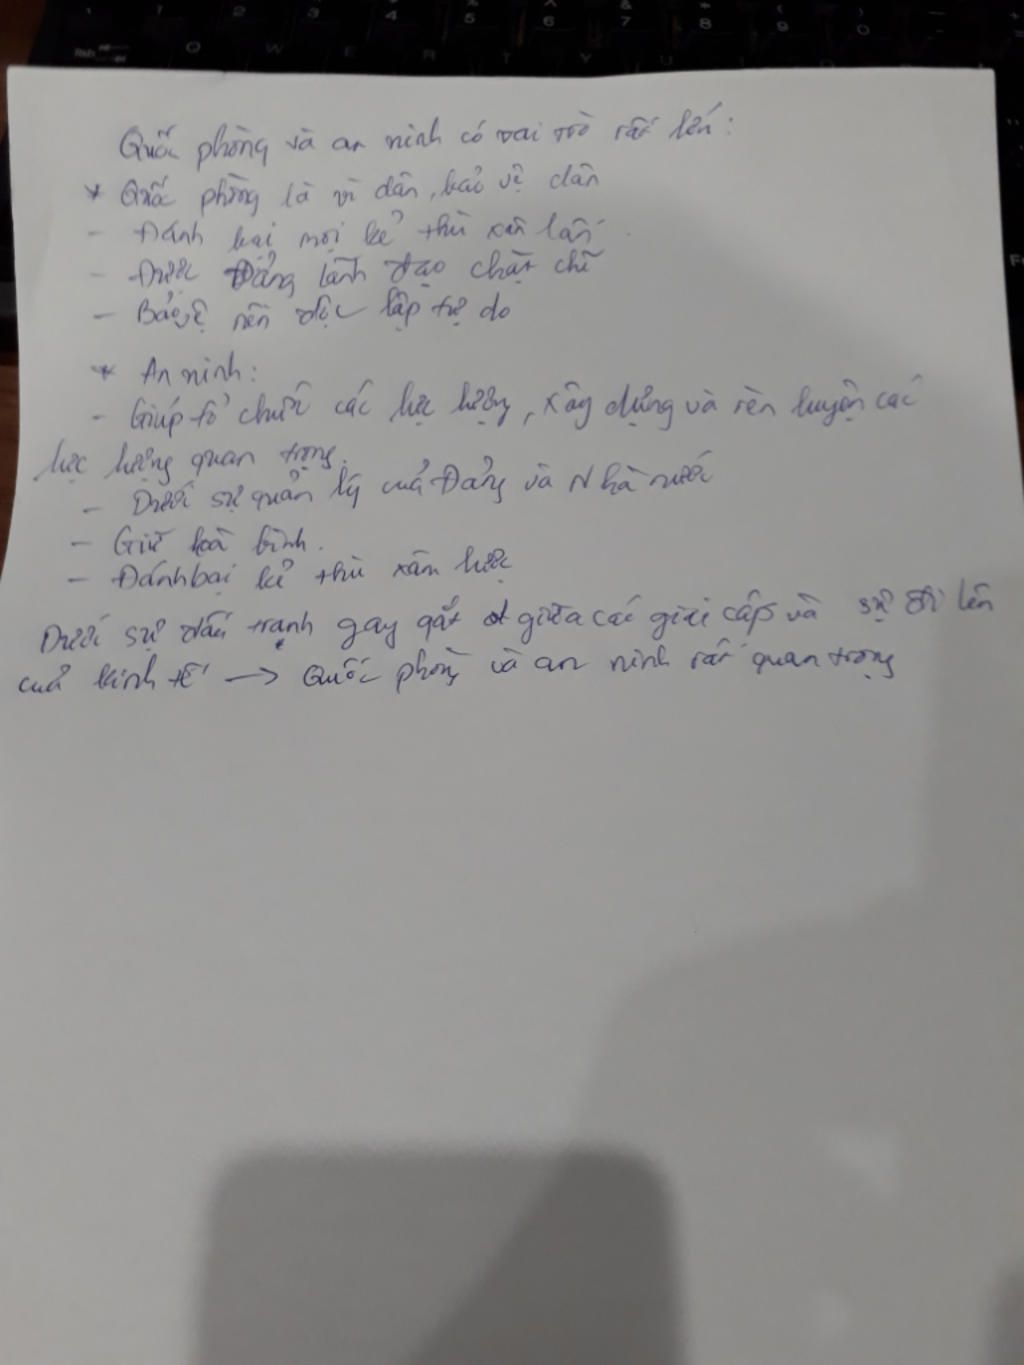 Quốc phòng và an ninh có vai trò rất lớn:
* Quốc phòng là vì dân, bảo vệ dân
- Đánh bại mọi kẻ thù xân lấn.
- Được Đảng lãnh đạo chặt chẽ
- Bảo vệ nền độc lập tự do
* An ninh:
- Giúp tổ chức các lực lượng, xây dựng và rèn luyện các
lực lượng quan trọng.
- Dưới sự quản lý của Đảng và Nhà nước
- Giữ hoà bình.
- Đánh bại kẻ thù xâm lược
Dưới sự đấu tranh gay gắt giữa các giai cấp và sự đi lên
của kinh tế → Quốc phòng và an ninh rất quan trọng